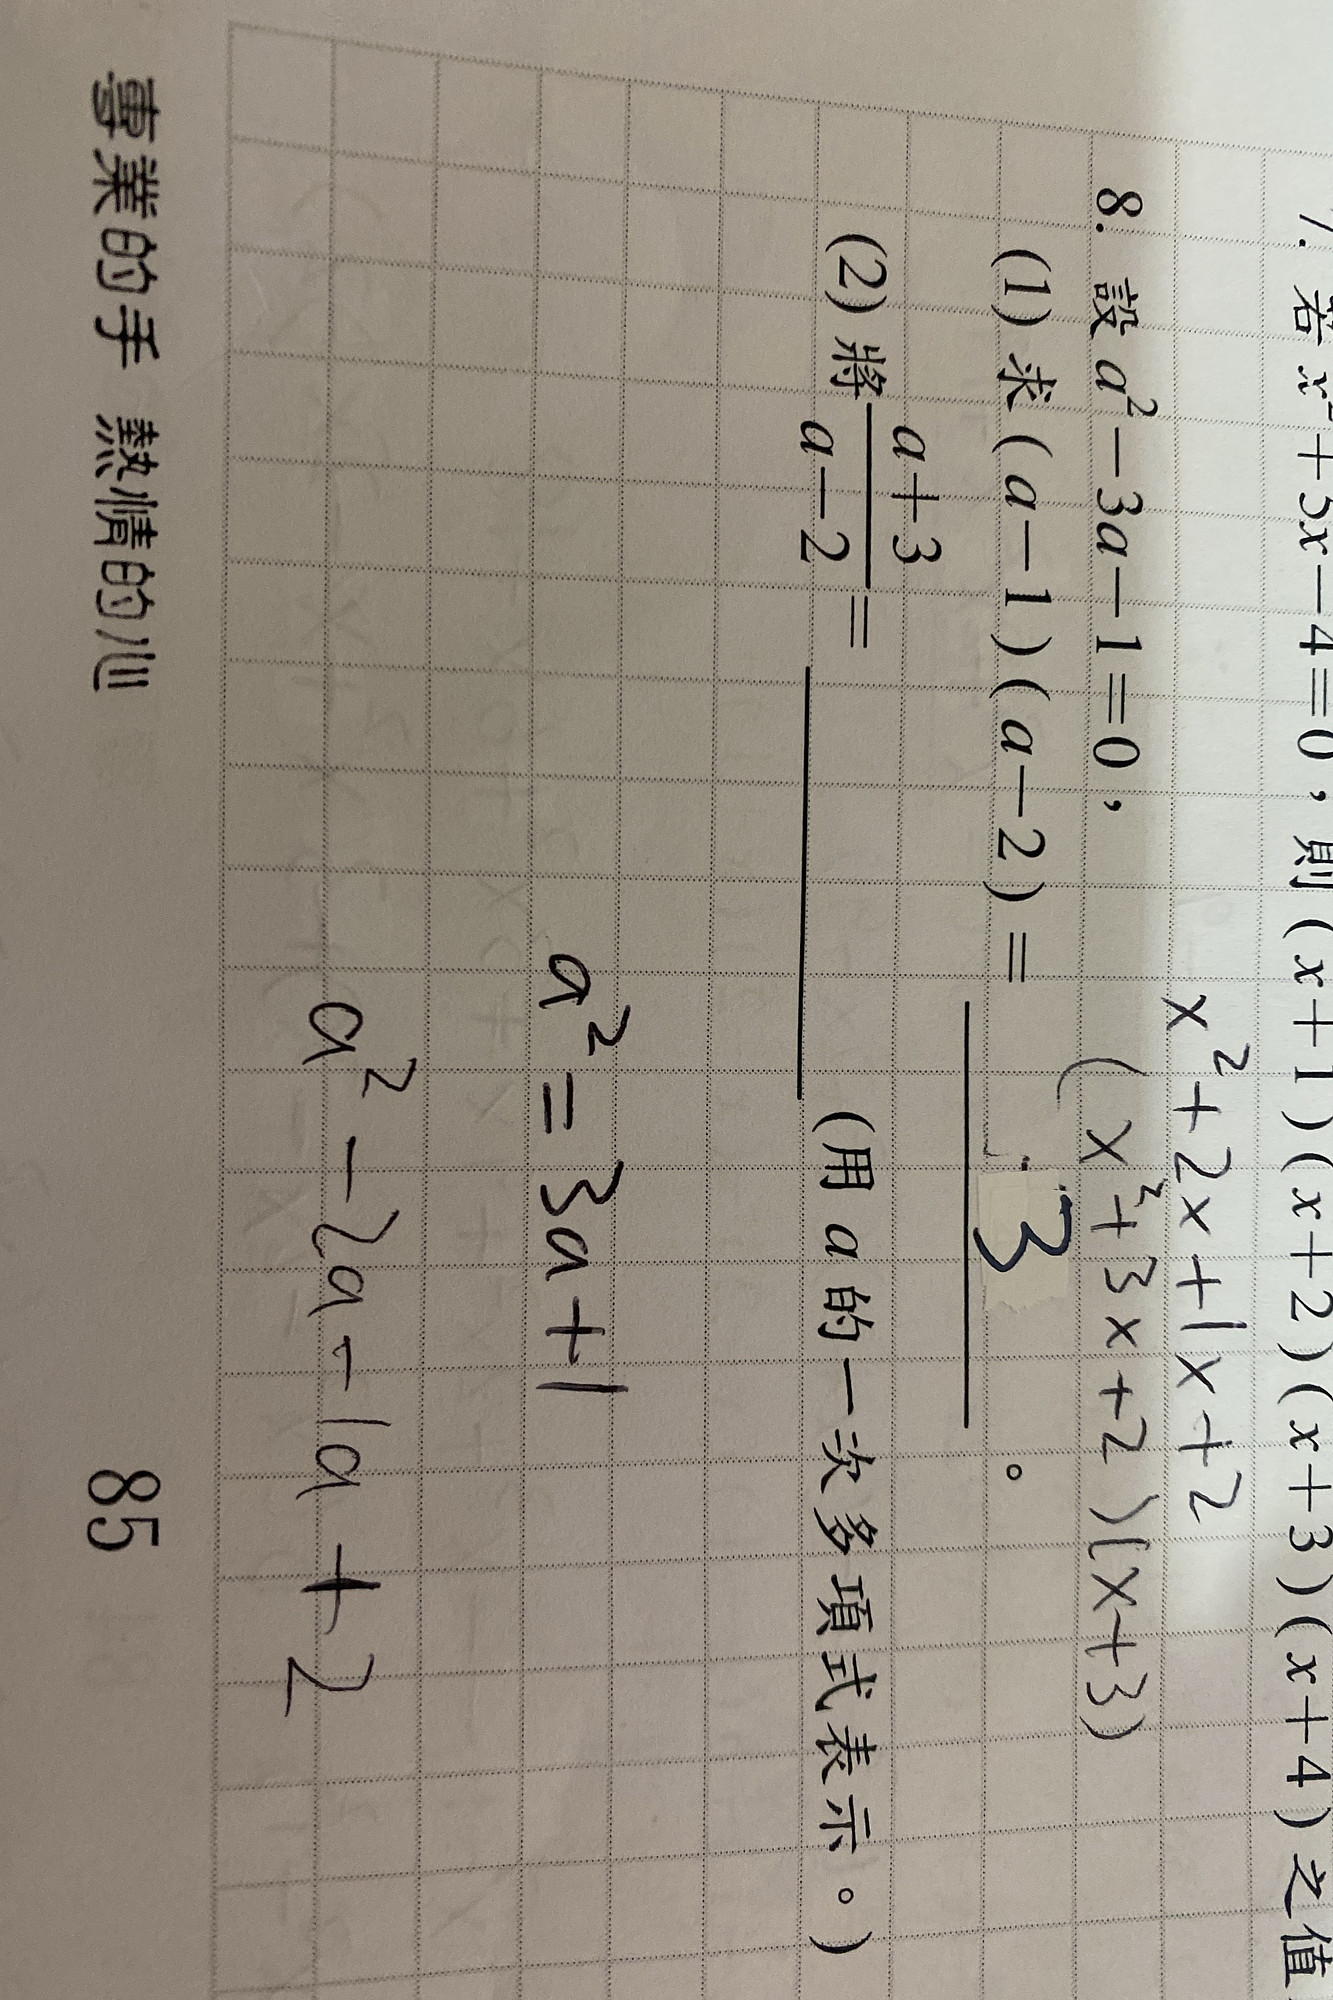 7. 若 x²+5x-4=0，則 (x+1)(x+2)(x+3)(x+4) 之值
x²+2x+1x+2
(x²+3x+2)(x+3)
8. 設 a²-3a-1=0，
(1) 求 (a-1)(a-2) = 3 。
(2) 將 \frac{a+3}{a-2} = ________ (用 a 的一次多項式表示。)
a²=3a+1
a²-2a-1a+2
專業的手 熱情的心 85